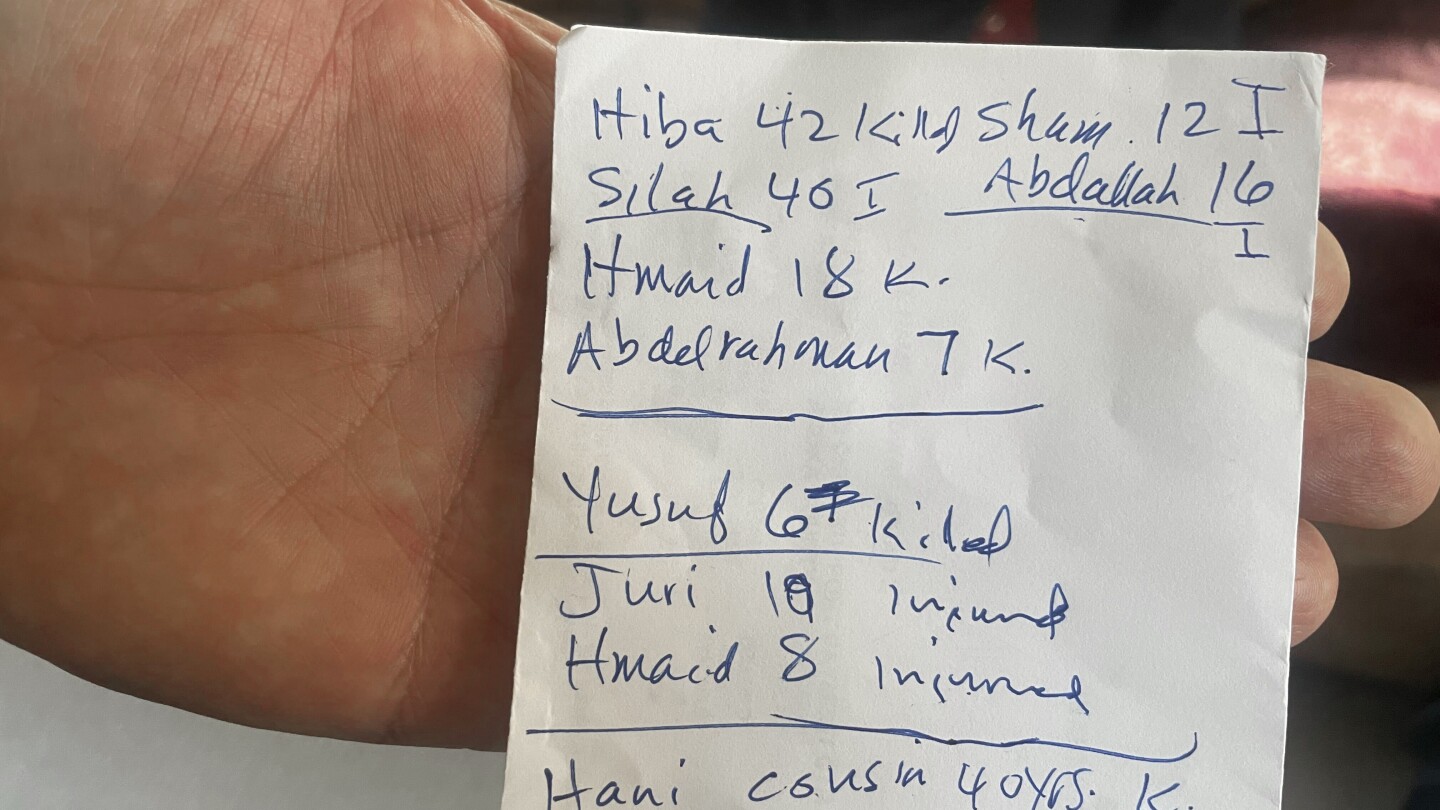 Hiba 42 killed Sham. 12 I
Silah 40 I Abdallah 16
I
Hmaid 18 K.
Abdelrahman 7 K.
Yusuf 6 killed
Juri injured
Hmaid 8 injured
Hani cousin 40 yrs. K.